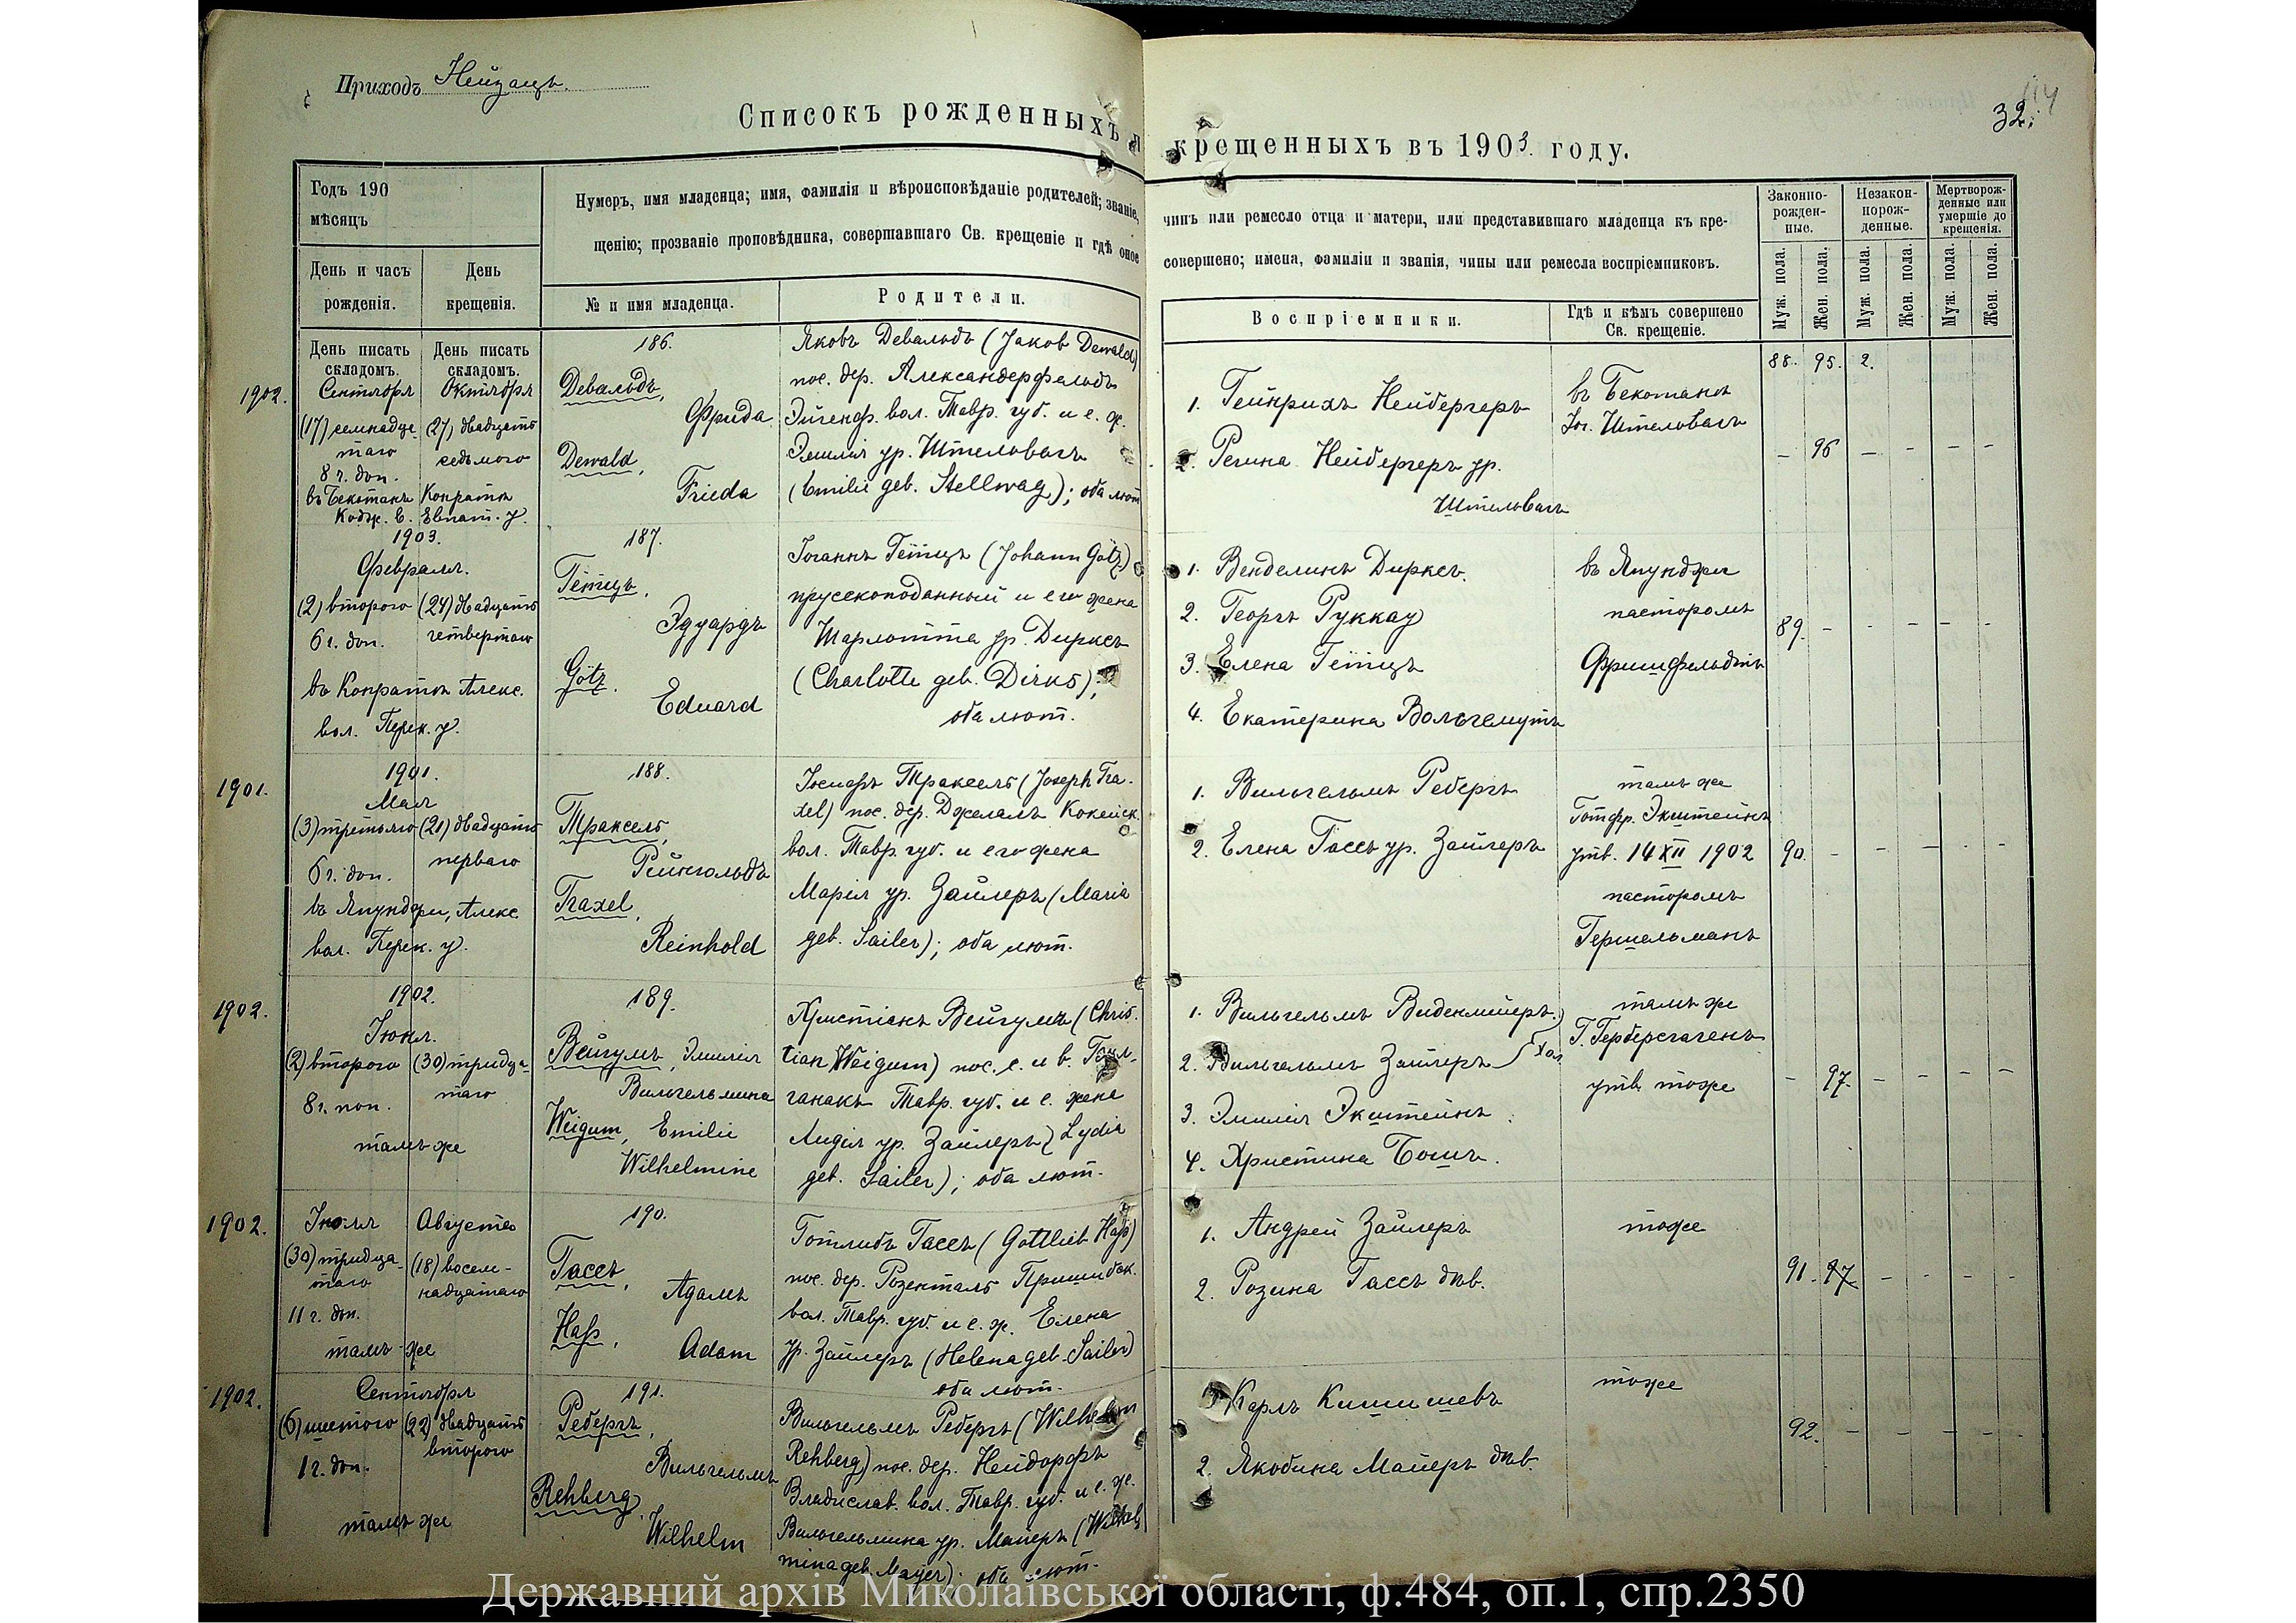 Приходъ Нейзацъ.
32.
Списокъ рожденныхъ и крещенныхъ въ 1903 году.
Годъ 190
мѣсяцъ
День и часъ рожденія.
День крещенія.
Нумеръ, имя младенца; имя, фамилія и вѣроисповѣданіе родителей; званіе, чинъ или ремесло отца и матери, или представившаго младенца къ кре-
щенію; прозваніе проповѣдника, совершавшаго Св. крещеніе и гдѣ оное совершено; имена, фамиліи и званія, чины или ремесла воспріемниковъ.
№ и имя младенца.
Родители.
Воспріемники.
Гдѣ и кѣмъ совершено Св. крещеніе.
Законно-рожден-ные.
Незакон-норож-денные.
Мертворож-денные или умершіе до крещенія.
Муж. пола.
Жен. пола.
Муж. пола.
Жен. пола.
Муж. пола.
Жен. пола.
День писать складомъ.
День писать складомъ.
1902.
Сентября
(17) семнадца-
таго
8 ч. доп.
Октября
(27) двадцать
седьмого
въ Бекотанъ Конратъ
Кодж. в. Евпат. у.
186.
Девальдъ,
Фрида
Dewald,
Frieda
Яковъ Девальдъ (Jakob Dewald)
пос. дер. Александерфельдъ
Эйгенф. вол. Тавр. губ. и е. ж.
Эмилія ур. Штельвагъ
(Emilie geb. Stellwag); оба лют.
1. Гейнрихъ Нейбергеръ
2. Регина Нейбергеръ ур.
Штельвагъ
въ Бекотанъ
Іог. Штельвагъ
88. 95. 2.
– 96 – – – –
1903.
Февраля.
(2) второго
6 ч. доп.
(24) двадцать
четвертаго
въ Конратъ Алекс.
вол. Перек. у.
187.
Гётцъ,
Эдуардъ
Götz.
Eduard
Іоганнъ Гётцъ (Johann Götz)
прусскоподанный и его жена
Шарлотта ур. Дирксъ
(Charlotte geb. Dirks);
оба лют.
1. Венделинъ Дирксъ.
2. Георгъ Руккау
3. Елена Гётцъ
4. Екатерина Вольгемутъ
въ Япунджи
пасторомъ
Фришфельдтъ
89. – – – – –
1901.
1901.
Мая
(3) третьяго
6 ч. доп.
(21) двадцать
перваго
въ Япунджи, Алекс.
вол. Перек. у.
188.
Траксель,
Рейнгольдъ
Traxel,
Reinhold
Іосифъ Траксель (Joseph Tra-
xel) пос. дер. Джелалъ Кокейск.
вол. Тавр. губ. и его жена
Марія ур. Зайлеръ (Maria
geb. Sailer); оба лют.
1. Вильгельмъ Ребергъ
2. Елена Гассъ ур. Зайлеръ
тамъ же
Готфр. Экштейнъ
утв. 14 XII 1902
пасторомъ
Гершельманъ
90. – – – – –
1902.
1902.
Іюня.
(2) второго
8 ч. поп.
(30) тридца-
таго
тамъ же
189.
Вейгумъ, Эмилія
Вильгельмина
Weigum, Emilie
Wilhelmine
Христіанъ Вейгумъ (Chris-
tian Weigum) пос. с. и в.
ганакъ Тавр. губ. и е. жена
Лидія ур. Зайлеръ (Lydia
geb. Sailer); оба лют.
1. Вильгельмъ Виденмейеръ
2. Вильгельмъ Зайлеръ } хол.
3. Эмилія Экштейнъ
4. Христина Бошъ.
тамъ же
Г. Герберсгагенъ
утв. тоже
– 97. – – – –
1902.
Іюля
(30) тридца-
таго
11 ч. доп.
Августа
(18) восем-
надцатаго
тамъ же
190.
Гассъ,
Адамъ
Haß,
Adam
Готлибъ Гассъ (Gottlieb Haß)
пос. дер. Розенталь Пришибск.
вол. Тавр. губ. и е. ж. Елена
ур. Зайлеръ (Helena geb. Sailer)
оба лют.
1. Андрей Зайлеръ
2. Розина Гассъ дѣв.
тоже
91. 97 – – – –
1902.
Сентября
(6) шестого
1 ч. доп.
(22) двадцать
второго
тамъ же
191.
Ребергъ,
Вильгельмъ
Rehberg,
Wilhelm
Вильгельмъ Ребергъ (Wilhelm
Rehberg) пос. дер. Нейдорфъ
Владислав. вол. Тавр. губ. и е. ж.
Вильгельмина ур. Майеръ (Wilhel-
mina geb. Mayer); оба лют.
1. Карлъ Кишишевъ
2. Якобина Майеръ дѣв.
тоже
92. – – – – –
Державний архів Миколаївської області, ф.484, оп.1, спр.2350